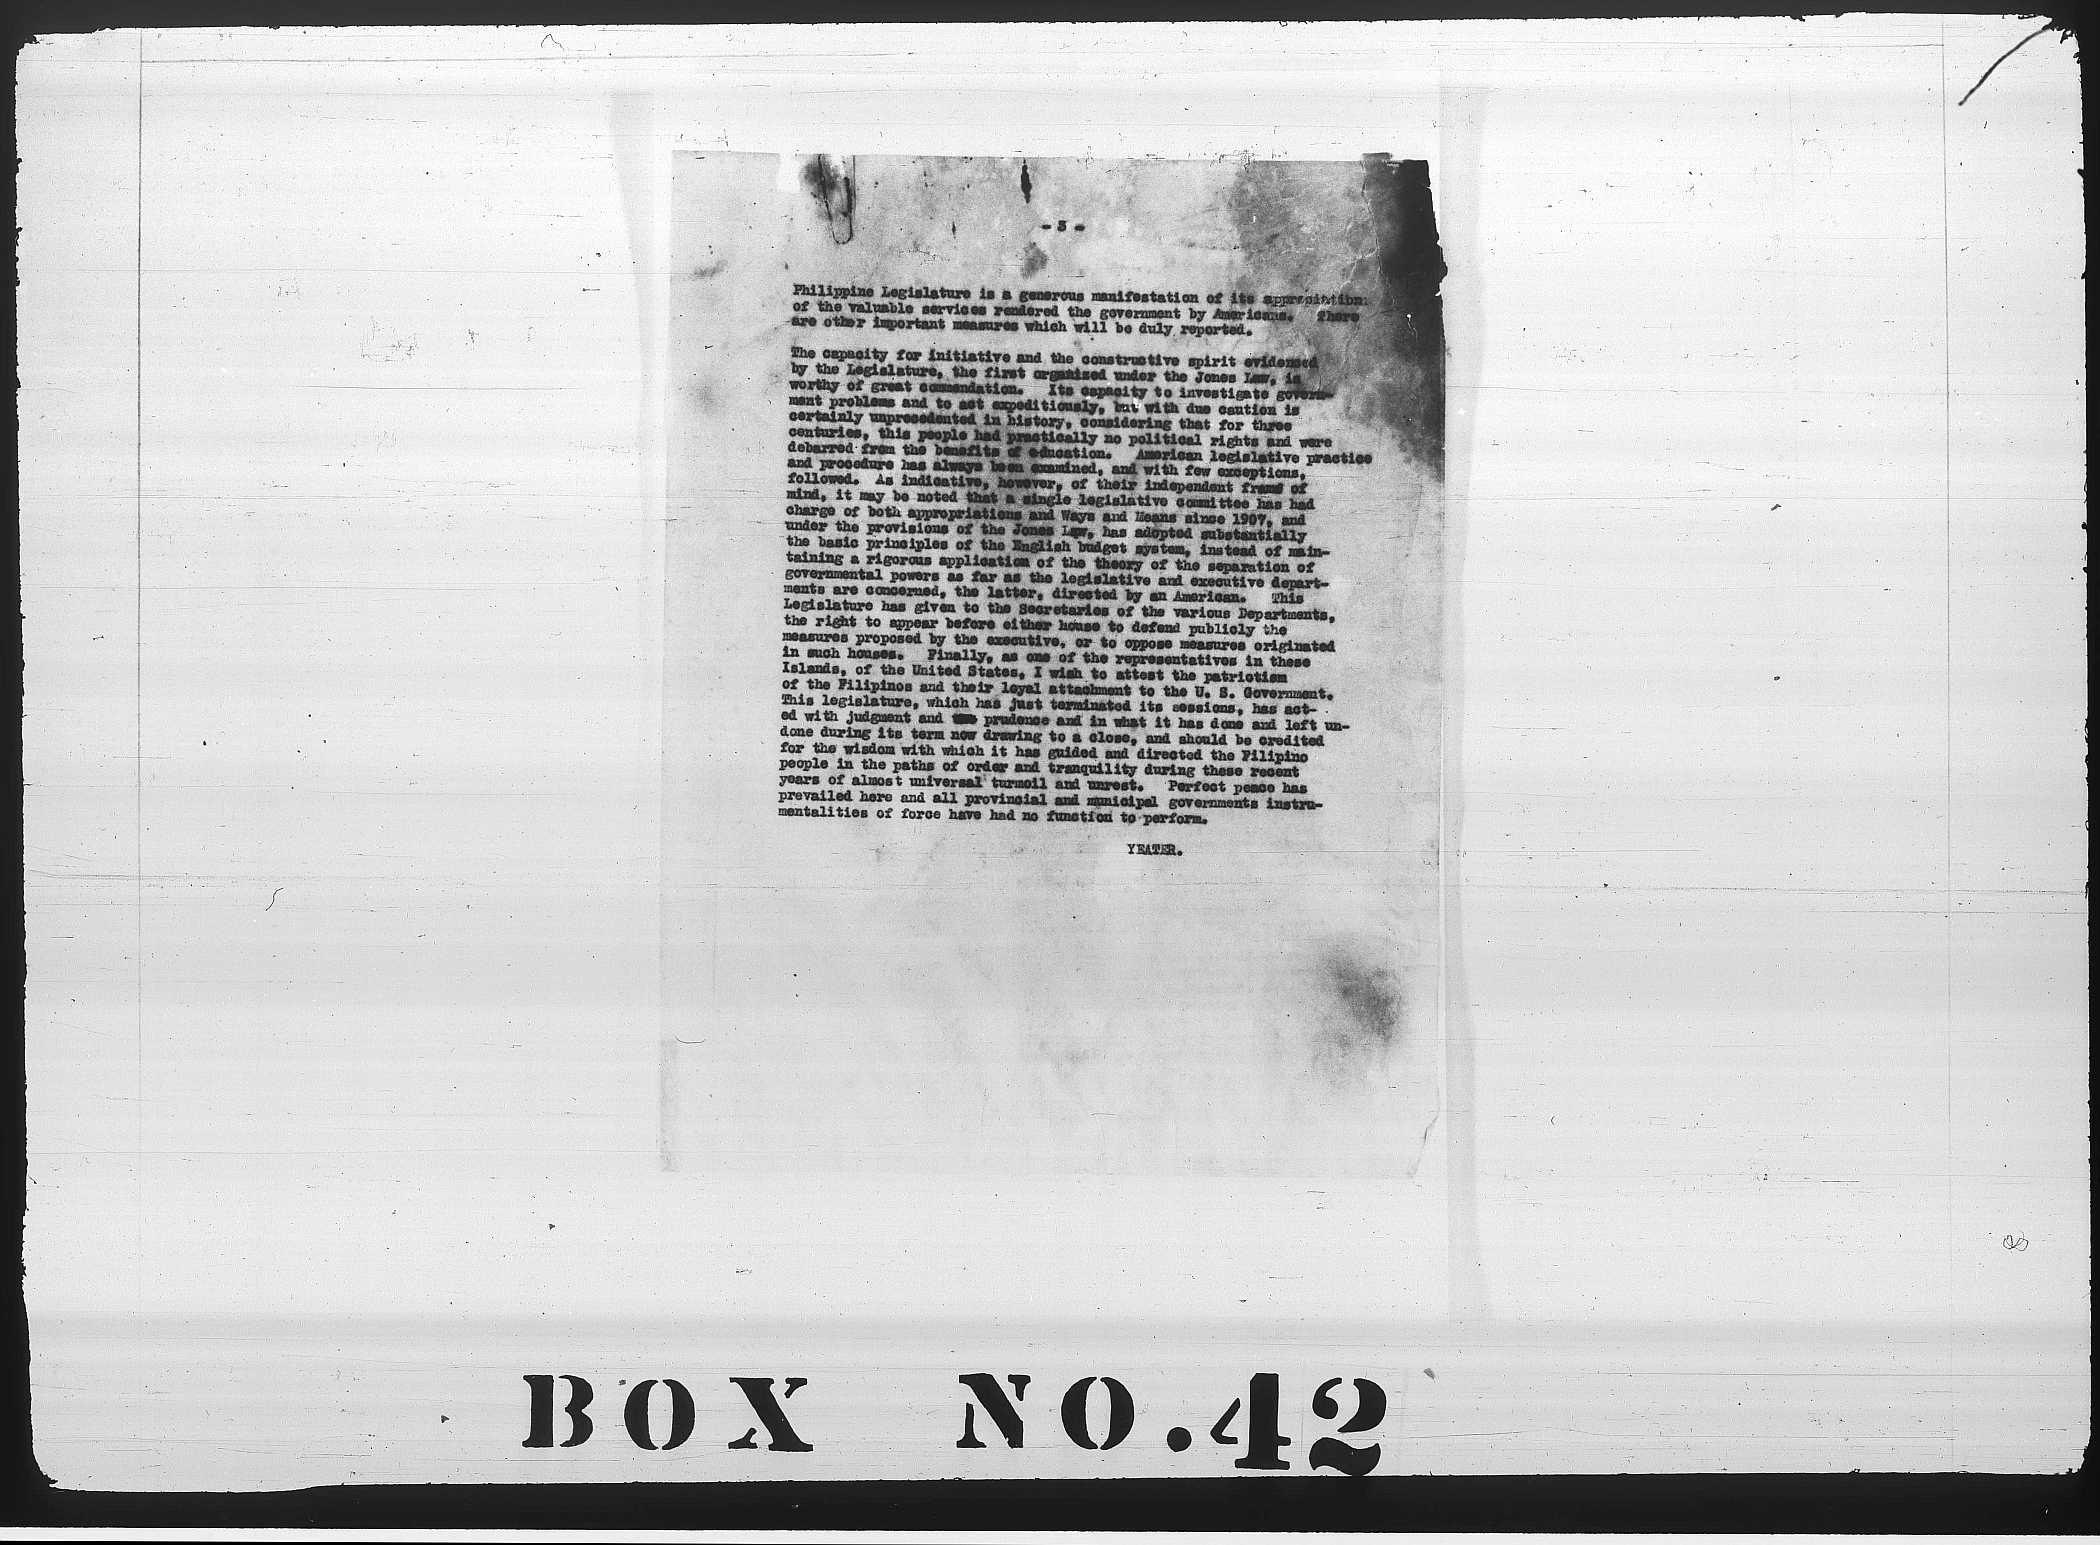 - 3 -
Philippine Legislature is a generous manifestation of its appreciation
of the valuable services rendered the government by Americans. There
are other important measures which will be duly reported.
The capacity for initiative and the constructive spirit evidenced
by the Legislature, the first organized under the Jones Law, is
worthy of great commendation. Its capacity to investigate govern-
ment problems and to act expeditiously, but with due caution is
certainly unprecedented in history, considering that for three
centuries, this people had practically no political rights and were
debarred from the benefits of education. American legislative practice
and procedure has always been examined, and with few exceptions,
followed. As indicative, however, of their independent frame of
mind, it may be noted that a single legislative committee has had
charge of both appropriations and Ways and Means since 1907, and
under the provisions of the Jones Law, has adopted substantially
the basic principles of the English budget system, instead of main-
taining a rigorous application of the theory of the separation of
governmental powers as far as the legislative and executive depart-
ments are concerned, the latter, directed by an American. This
Legislature has given to the Secretaries of the various Departments,
the right to appear before either house to defend publicly the
measures proposed by the executive, or to oppose measures originated
in such houses. Finally, as one of the representatives in these
Islands, of the United States, I wish to attest the patriotism
of the Filipinos and their loyal attachment to the U. S. Government.
This legislature, which has just terminated its sessions, has act-
ed with judgment and prudence and in what it has done and left un-
done during its term now drawing to a close, and should be credited
for the wisdom with which it has guided and directed the Filipino
people in the paths of order and tranquility during these recent
years of almost universal turmoil and unrest. Perfect peace has
prevailed here and all provincial and municipal governments instru-
mentalities of force have had no function to perform.
YEATER.
BOX NO.42